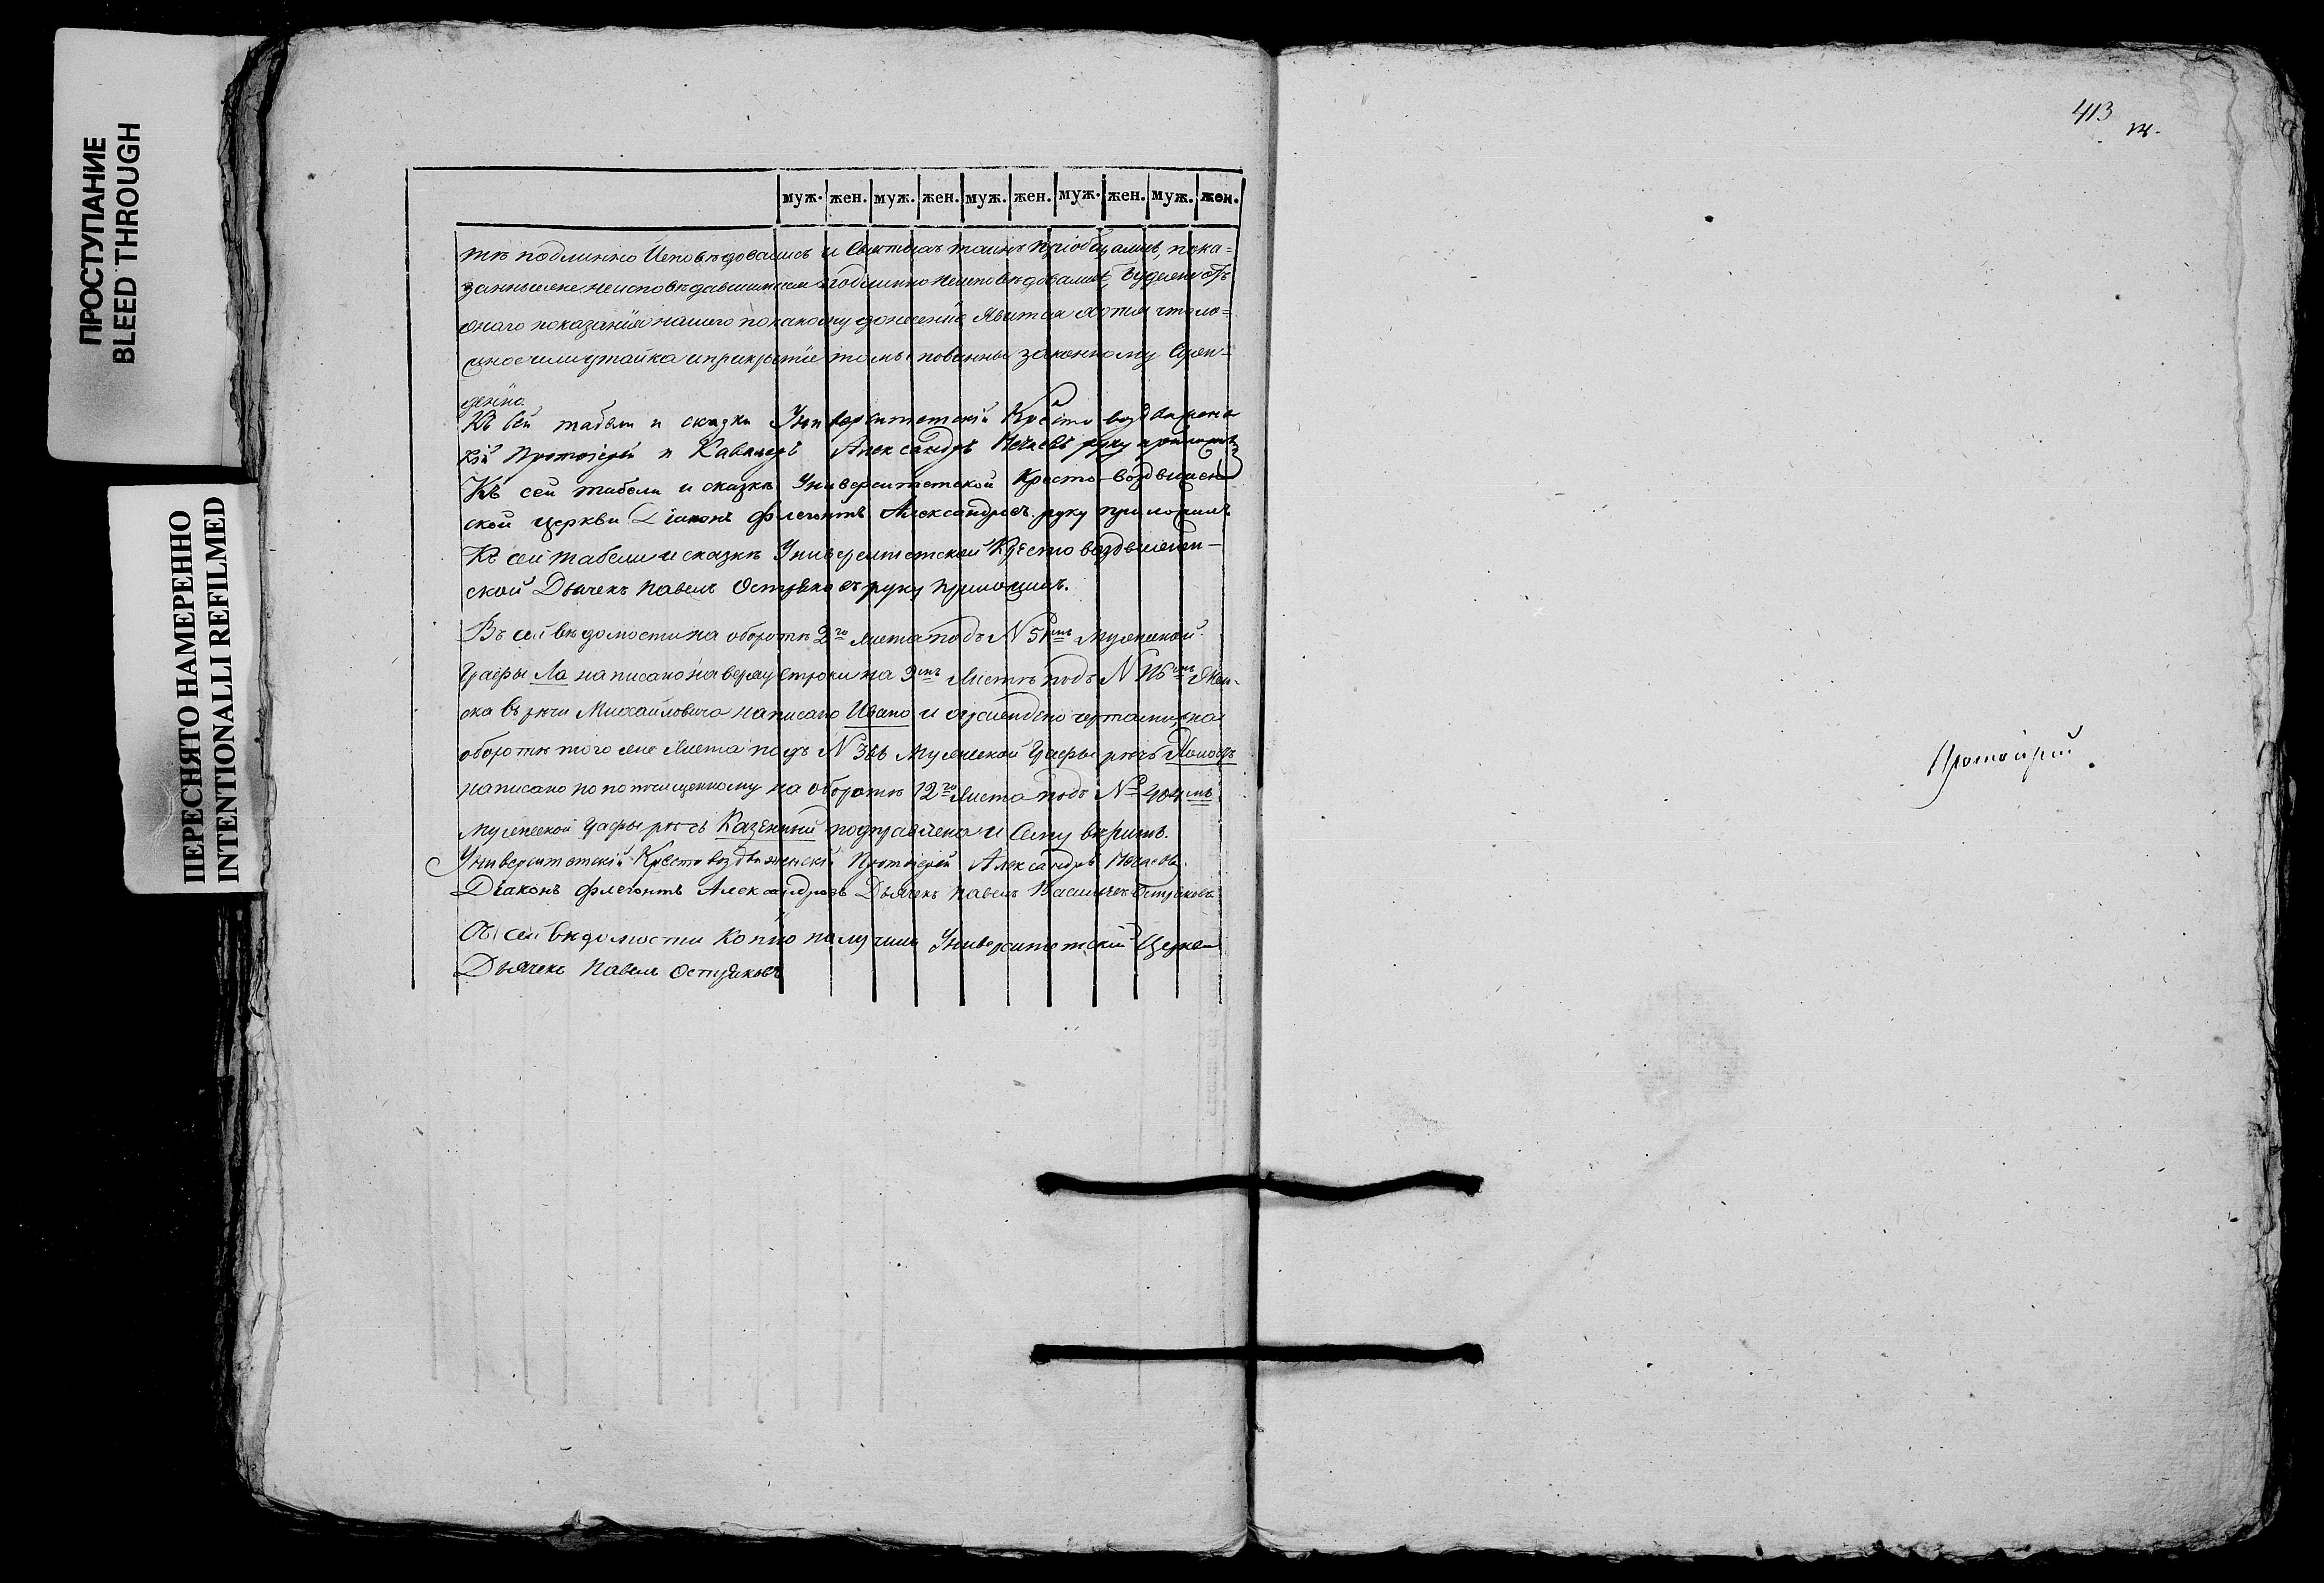 ПРОСТУПАНИЕ
BLEED THROUGH
ПЕРЕСНЯТО НАМЕРЕННО
INTENTIONALLI REFILMED
413
муж. жен. муж. жен. муж. жен. муж. жен. муж. жен.
тѣ подлинно Исповѣдовались и Святыхъ таинъ пріобщались, пока-
занныеже неисповѣдавшимися подлинно неисповѣдовались, буде же отъ
онаго показанія нашего по какому донесенію явится хотя что ло-
жное или утайка и прикрытіе то мы повинны законному Суж-
денію.
Къ сей табели и сказки Университетскій Крестовоздвижен
кій Протоіерей и Кавалеръ Александръ Нечаевъ руку приложилъ
Къ сей табели и сказкѣ Университетской Кресто-воздвижен
ской церкви Діаконъ Флегонтъ Александровъ руку приложилъ
Къ сей табели и сказкѣ Университетской Крестовоздвижен-
ской Дьячекъ Павелъ Остряковъ руку приложилъ.
Въ сей вѣдомости на оборотѣ 2го листа подъ N 51мъ Мужеской
Графы Ла написано на верху строки на 3мъ Листѣ подъ N 116мъ Жен-
ска въ речи Михайловича написано Ивано и
оборотѣ того же листа подъ N Мужеской Графы речь
написано по потчищенному на оборотѣ 12го Листа подъ № 404мъ
Мужеской Графы речь Казенный подправлена и Сему веримъ.
Университетскій Крестовоздвиженскій Протоіерей Александръ Нечаевъ.
Діаконъ Флегонтъ Александровъ Дьячекъ Павелъ Васильевъ Остряковъ.
Съ сей вѣдомости Копію получилъ Университетской Церкви
Дьячекъ Павелъ Остряковъ
Протоіерей